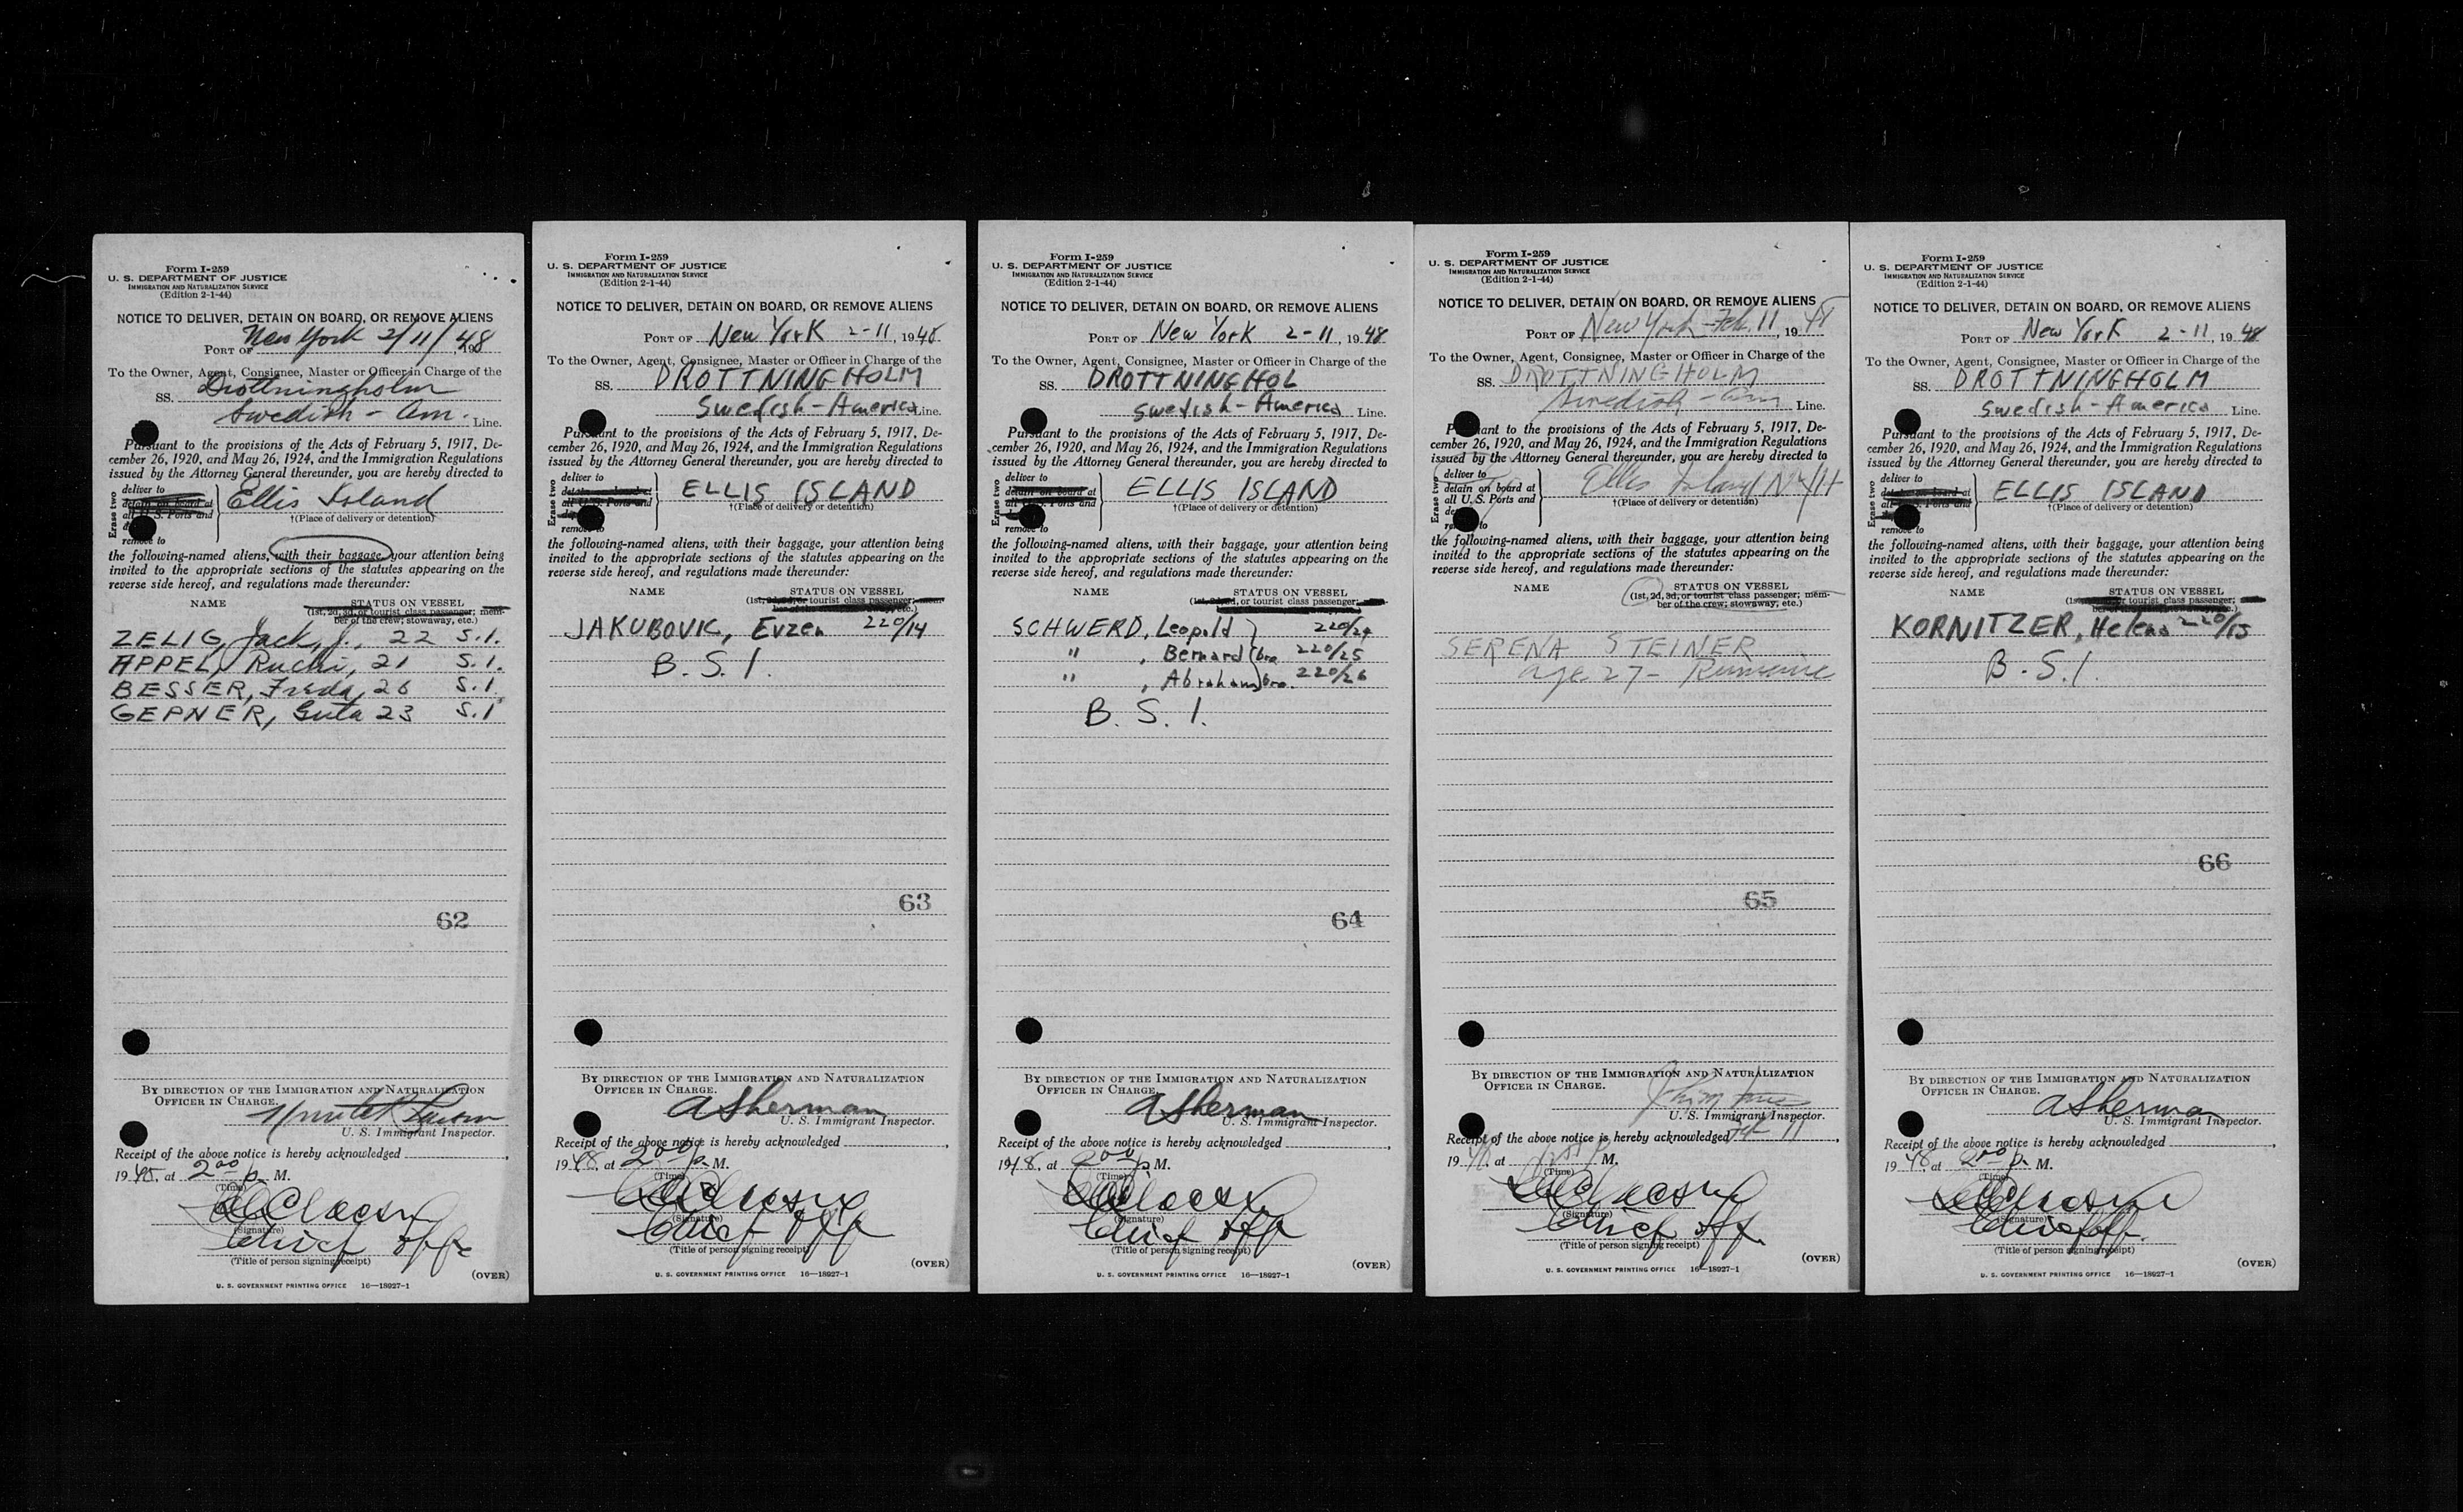 Form I-259
U. S. DEPARTMENT OF JUSTICE
IMMIGRATION AND NATURALIZATION SERVICE
(Edition 2-1-44)
NOTICE TO DELIVER, DETAIN ON BOARD, OR REMOVE ALIENS
PORT OF New York 2/11/, 1948
To the Owner, Agent, Consignee, Master or Officer in Charge of the
SS. Drottningholm
Swedish - Am. Line.
Pursuant to the provisions of the Acts of February 5, 1917, De-
cember 26, 1920, and May 26, 1924, and the Immigration Regulations
issued by the Attorney General thereunder, you are hereby directed to
Erase two
deliver to
detain on board at
all U. S. Ports and
remove to
Ellis Island
†(Place of delivery or detention)
the following-named aliens, with their baggage, your attention being
invited to the appropriate sections of the statutes appearing on the
reverse side hereof, and regulations made thereunder:
NAME STATUS ON VESSEL
(1st, 2d, 3d, or tourist class passenger; mem-
ber of the crew; stowaway, etc.)
ZELIG, Jack, J., 22 S.I.
APPEL, Ruchi, 21 S.I.
BESSER, Freda, 26 S.I.
GEPNER, Guta 23 S.I
62
BY DIRECTION OF THE IMMIGRATION AND NATURALIZATION
OFFICER IN CHARGE.
U. S. Immigrant Inspector.
Receipt of the above notice is hereby acknowledged
1948, at 2 00 p. M.
(Time)
(Signature)
Chief Offr
(Title of person signing receipt)
(OVER)
U. S. GOVERNMENT PRINTING OFFICE 16—18927-1
Form I-259
U. S. DEPARTMENT OF JUSTICE
IMMIGRATION AND NATURALIZATION SERVICE
(Edition 2-1-44)
NOTICE TO DELIVER, DETAIN ON BOARD, OR REMOVE ALIENS
PORT OF New York 2-11, 1948
To the Owner, Agent, Consignee, Master or Officer in Charge of the
SS. DROTTNINGHOLM
Swedish-America Line.
Pursuant to the provisions of the Acts of February 5, 1917, De-
cember 26, 1920, and May 26, 1924, and the Immigration Regulations
issued by the Attorney General thereunder, you are hereby directed to
Erase two
deliver to
all U. S. Ports and
remove to
ELLIS ISLAND
†(Place of delivery or detention)
the following-named aliens, with their baggage, your attention being
invited to the appropriate sections of the statutes appearing on the
reverse side hereof, and regulations made thereunder:
NAME STATUS ON VESSEL
(1st, 2d, 3d, or tourist class passenger; mem-
ber of the crew; stowaway, etc.)
JAKUBOVIC, Evzen 220/14
B. S. I.
63
BY DIRECTION OF THE IMMIGRATION AND NATURALIZATION
OFFICER IN CHARGE.
A Sherman
U. S. Immigrant Inspector.
Receipt of the above notice is hereby acknowledged
1948, at 2 00 p. M.
(Time)
(Signature)
Chief Off
(Title of person signing receipt)
(OVER)
U. S. GOVERNMENT PRINTING OFFICE 16—18927-1
Form I-259
U. S. DEPARTMENT OF JUSTICE
IMMIGRATION AND NATURALIZATION SERVICE
(Edition 2-1-44)
NOTICE TO DELIVER, DETAIN ON BOARD, OR REMOVE ALIENS
PORT OF New York 2-11, 1948
To the Owner, Agent, Consignee, Master or Officer in Charge of the
SS. DROTTNINGHOL
Swedish-America Line.
Pursuant to the provisions of the Acts of February 5, 1917, De-
cember 26, 1920, and May 26, 1924, and the Immigration Regulations
issued by the Attorney General thereunder, you are hereby directed to
Erase two
deliver to
detain on board at
all U. S. Ports and
remove to
ELLIS ISLAND
†(Place of delivery or detention)
the following-named aliens, with their baggage, your attention being
invited to the appropriate sections of the statutes appearing on the
reverse side hereof, and regulations made thereunder:
NAME STATUS ON VESSEL
(1st, 2d, 3d, or tourist class passenger;
SCHWERD, Leopold 220/24
" , Bernard bro 220/25
" , Abraham bro. 220/26
B. S. I.
64
BY DIRECTION OF THE IMMIGRATION AND NATURALIZATION
OFFICER IN CHARGE.
A Sherman
U. S. Immigrant Inspector.
Receipt of the above notice is hereby acknowledged
1948, at 2 00 p. M.
(Time)
(Signature)
Chief Off
(Title of person signing receipt)
(OVER)
U. S. GOVERNMENT PRINTING OFFICE 16—18927-1
Form I-259
U. S. DEPARTMENT OF JUSTICE
IMMIGRATION AND NATURALIZATION SERVICE
(Edition 2-1-44)
NOTICE TO DELIVER, DETAIN ON BOARD, OR REMOVE ALIENS
PORT OF New York - Feb. 11, 1948
To the Owner, Agent, Consignee, Master or Officer in Charge of the
SS. DROTTNINGHOLM
Swedish - Am Line.
Pursuant to the provisions of the Acts of February 5, 1917, De-
cember 26, 1920, and May 26, 1924, and the Immigration Regulations
issued by the Attorney General thereunder, you are hereby directed to
Erase two
deliver to
detain on board at
all U. S. Ports and
remove to
Ellis Island NYH
†(Place of delivery or detention)
the following-named aliens, with their baggage, your attention being
invited to the appropriate sections of the statutes appearing on the
reverse side hereof, and regulations made thereunder:
NAME STATUS ON VESSEL
(1st, 2d, 3d, or tourist class passenger; mem-
ber of the crew; stowaway, etc.)
SERENA STEINER
age 27 - Rumania
65
BY DIRECTION OF THE IMMIGRATION AND NATURALIZATION
OFFICER IN CHARGE.
U. S. Immigrant Inspector.
Receipt of the above notice is hereby acknowledged Feb 11,
1948, at M.
(Time)
(Signature)
Chief Off.
(Title of person signing receipt)
(OVER)
U. S. GOVERNMENT PRINTING OFFICE 16—18927-1
Form I-259
U. S. DEPARTMENT OF JUSTICE
IMMIGRATION AND NATURALIZATION SERVICE
(Edition 2-1-44)
NOTICE TO DELIVER, DETAIN ON BOARD, OR REMOVE ALIENS
PORT OF New York 2-11, 1948
To the Owner, Agent, Consignee, Master or Officer in Charge of the
SS. DROTTNINGHOLM
Swedish-America Line.
Pursuant to the provisions of the Acts of February 5, 1917, De-
cember 26, 1920, and May 26, 1924, and the Immigration Regulations
issued by the Attorney General thereunder, you are hereby directed to
Erase two
deliver to
detain on board at
all U. S. Ports and
remove to
ELLIS ISLAND
†(Place of delivery or detention)
the following-named aliens, with their baggage, your attention being
invited to the appropriate sections of the statutes appearing on the
reverse side hereof, and regulations made thereunder:
NAME STATUS ON VESSEL
or tourist class passenger;
KORNITZER, Helena 220/15
B. S. I.
66
BY DIRECTION OF THE IMMIGRATION AND NATURALIZATION
OFFICER IN CHARGE.
A Sherman
U. S. Immigrant Inspector.
Receipt of the above notice is hereby acknowledged
1948, at 2 00 p. M.
(Time)
(Signature)
Chief Off.
(Title of person signing receipt)
(OVER)
U. S. GOVERNMENT PRINTING OFFICE 16—18927-1